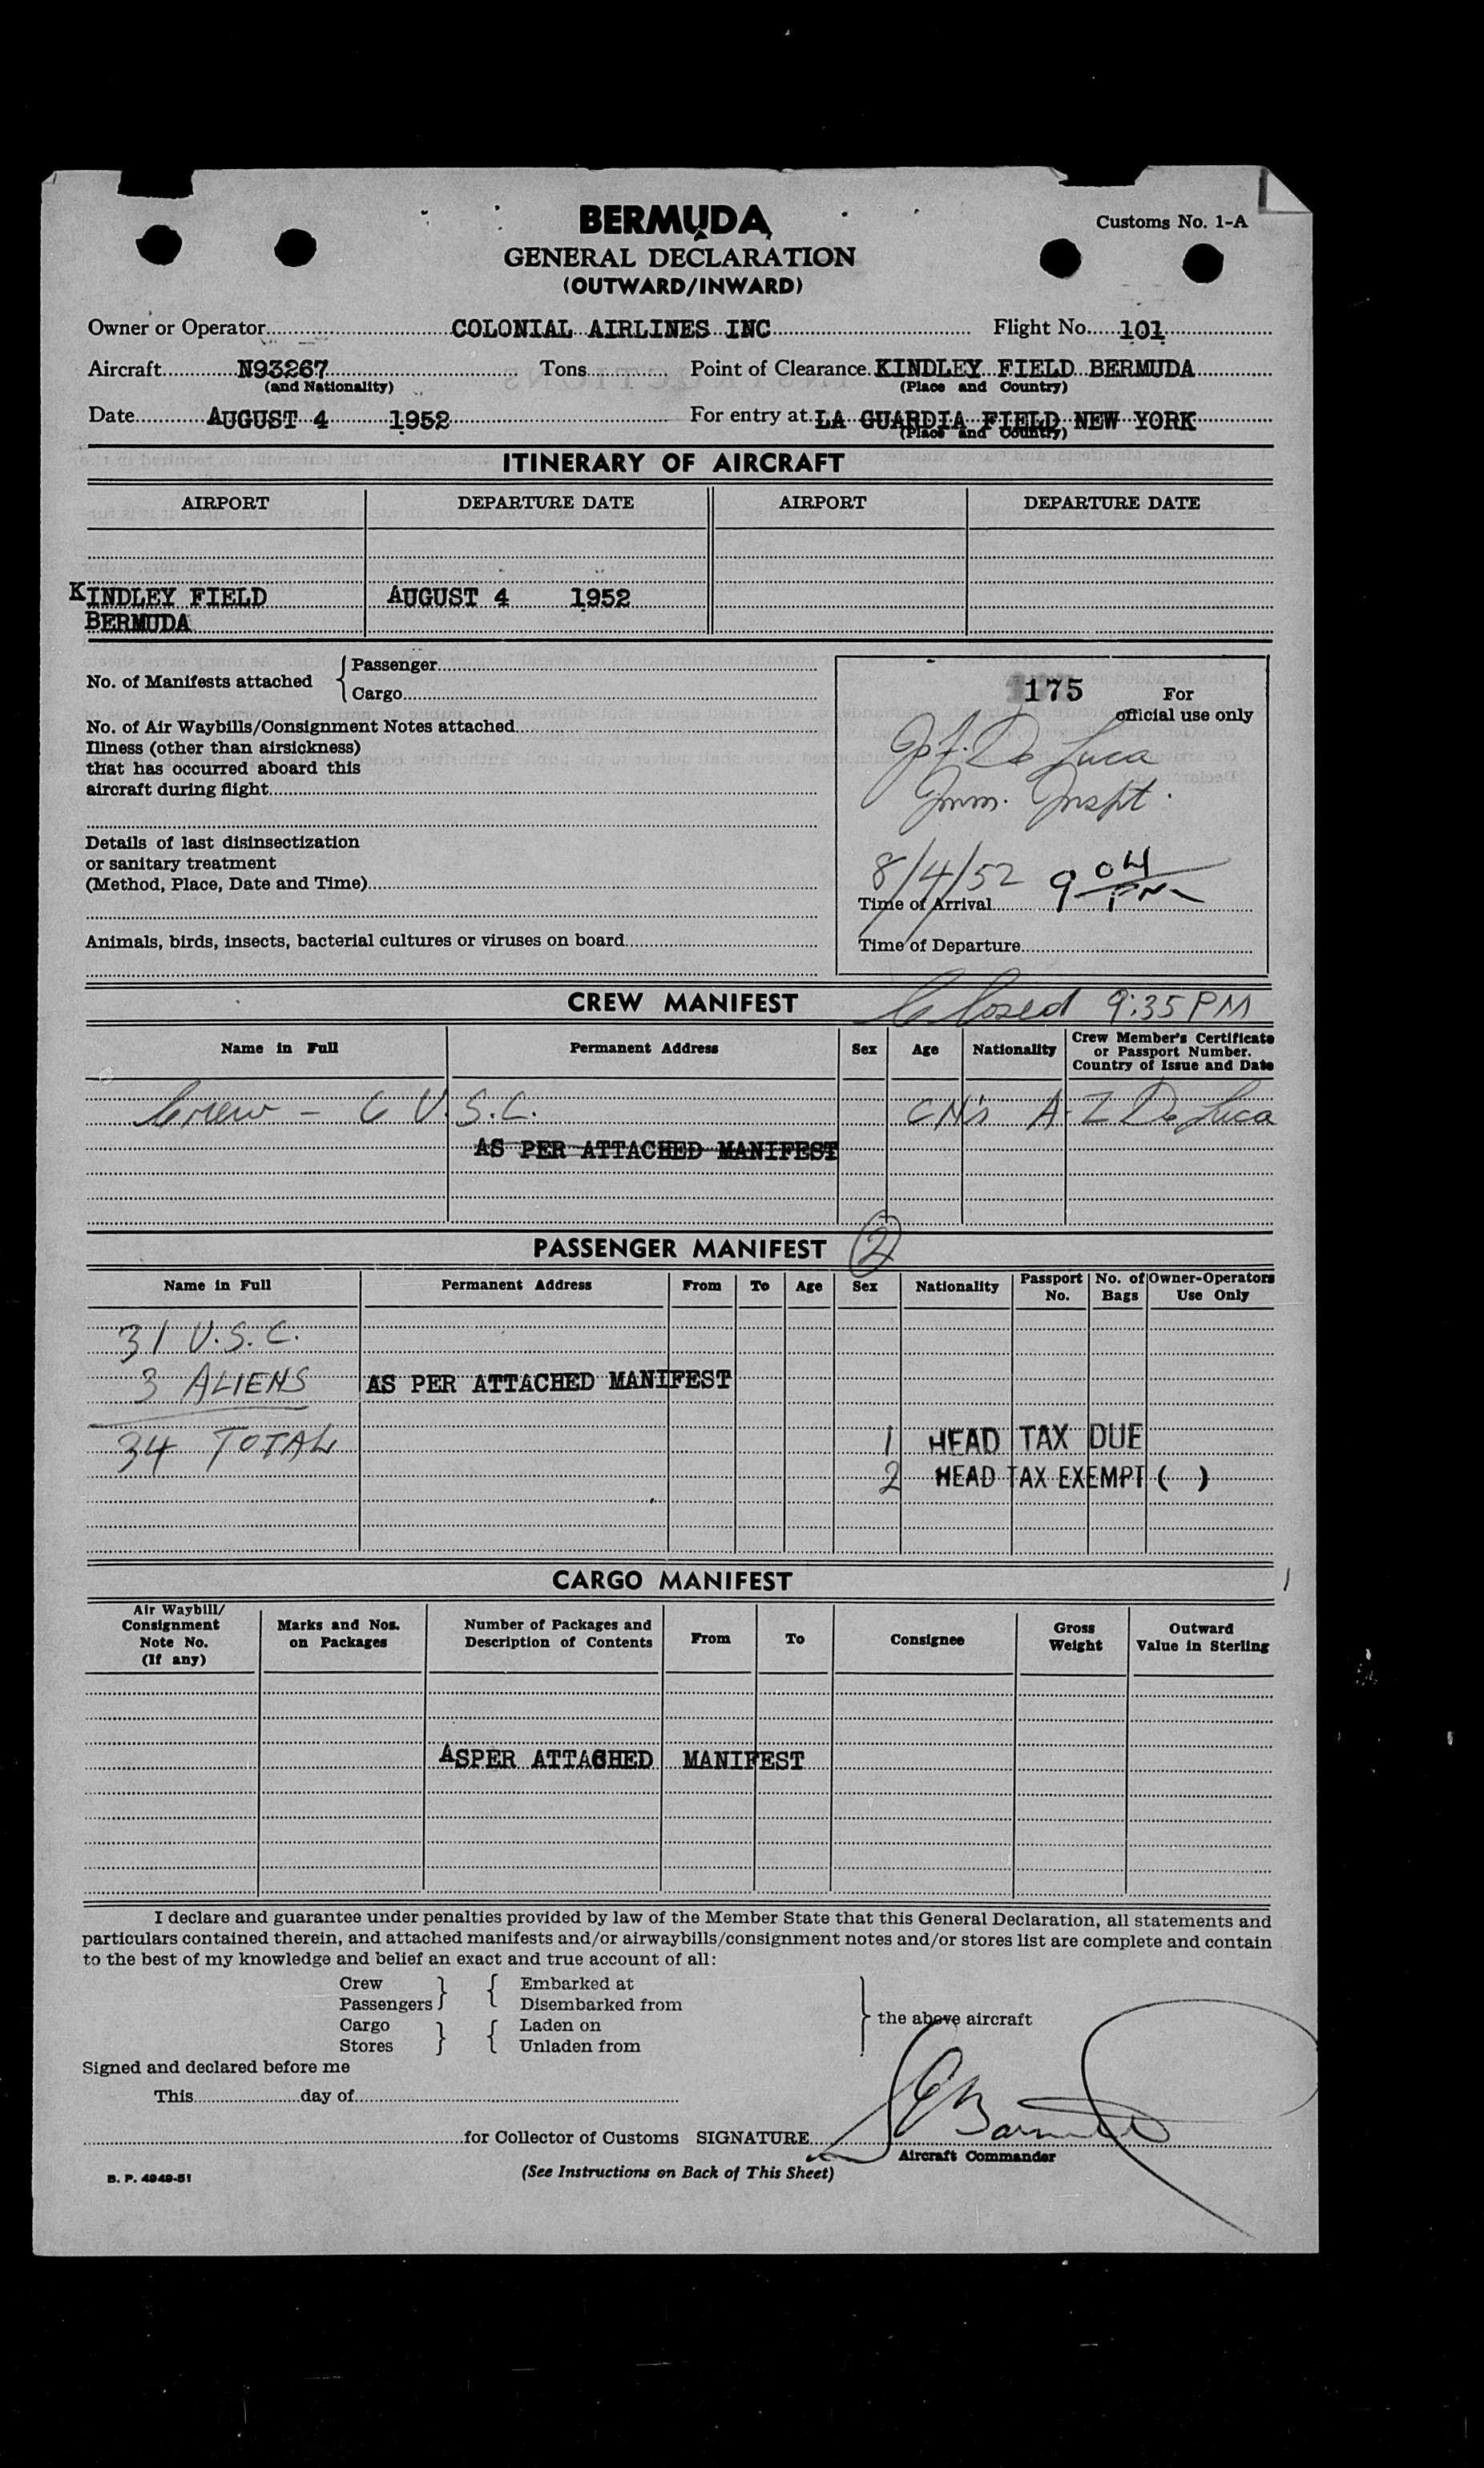 BERMUDA
Customs No. 1-A
GENERAL DECLARATION
(OUTWARD/INWARD)
Owner or Operator COLONIAL AIRLINES INC Flight No. 101
Aircraft N93267 Tons Point of Clearance KINDLEY FIELD BERMUDA
(and Nationality) (Place and Country)
Date AUGUST 4 1952 For entry at LA GUARDIA FIELD NEW YORK
(Place and Country)
ITINERARY OF AIRCRAFT
AIRPORT DEPARTURE DATE AIRPORT DEPARTURE DATE
KINDLEY FIELD AUGUST 4 1952
BERMUDA
No. of Manifests attached { Passenger
Cargo
No. of Air Waybills/Consignment Notes attached
Illness (other than airsickness)
that has occurred aboard this
aircraft during flight
Details of last disinsectization
or sanitary treatment
(Method, Place, Date and Time)
Animals, birds, insects, bacterial cultures or viruses on board
175 For
official use only
De Luca
Imm. Inspt.
8/4/52 9 04 PM
Time of Arrival
Time of Departure
Closed 9:35 PM
CREW MANIFEST
Name in Full Permanent Address Sex Age Nationality Crew Member's Certificate
or Passport Number.
Country of Issue and Date
Crew - 6 U.S.C. CN's A-Z De Luca
AS PER ATTACHED MANIFEST
PASSENGER MANIFEST 2
Name in Full Permanent Address From To Age Sex Nationality Passport No. No. of Bags Owner-Operators Use Only
31 U.S.C.
3 ALIENS AS PER ATTACHED MANIFEST
34 TOTAL 1 HEAD TAX DUE
2 HEAD TAX EXEMPT ( )
CARGO MANIFEST
Air Waybill/
Consignment
Note No.
(If any)
Marks and Nos.
on Packages
Number of Packages and
Description of Contents
From To Consignee
Gross
Weight
Outward
Value in Sterling
ASPER ATTACHED MANIFEST
I declare and guarantee under penalties provided by law of the Member State that this General Declaration, all statements and
particulars contained therein, and attached manifests and/or airwaybills/consignment notes and/or stores list are complete and contain
to the best of my knowledge and belief an exact and true account of all:
Crew } { Embarked at
Passengers Disembarked from
Cargo } { Laden on
Stores Unladen from
} the above aircraft
Signed and declared before me
This day of
for Collector of Customs SIGNATURE
Aircraft Commander
B. P. 4949-51 (See Instructions on Back of This Sheet)